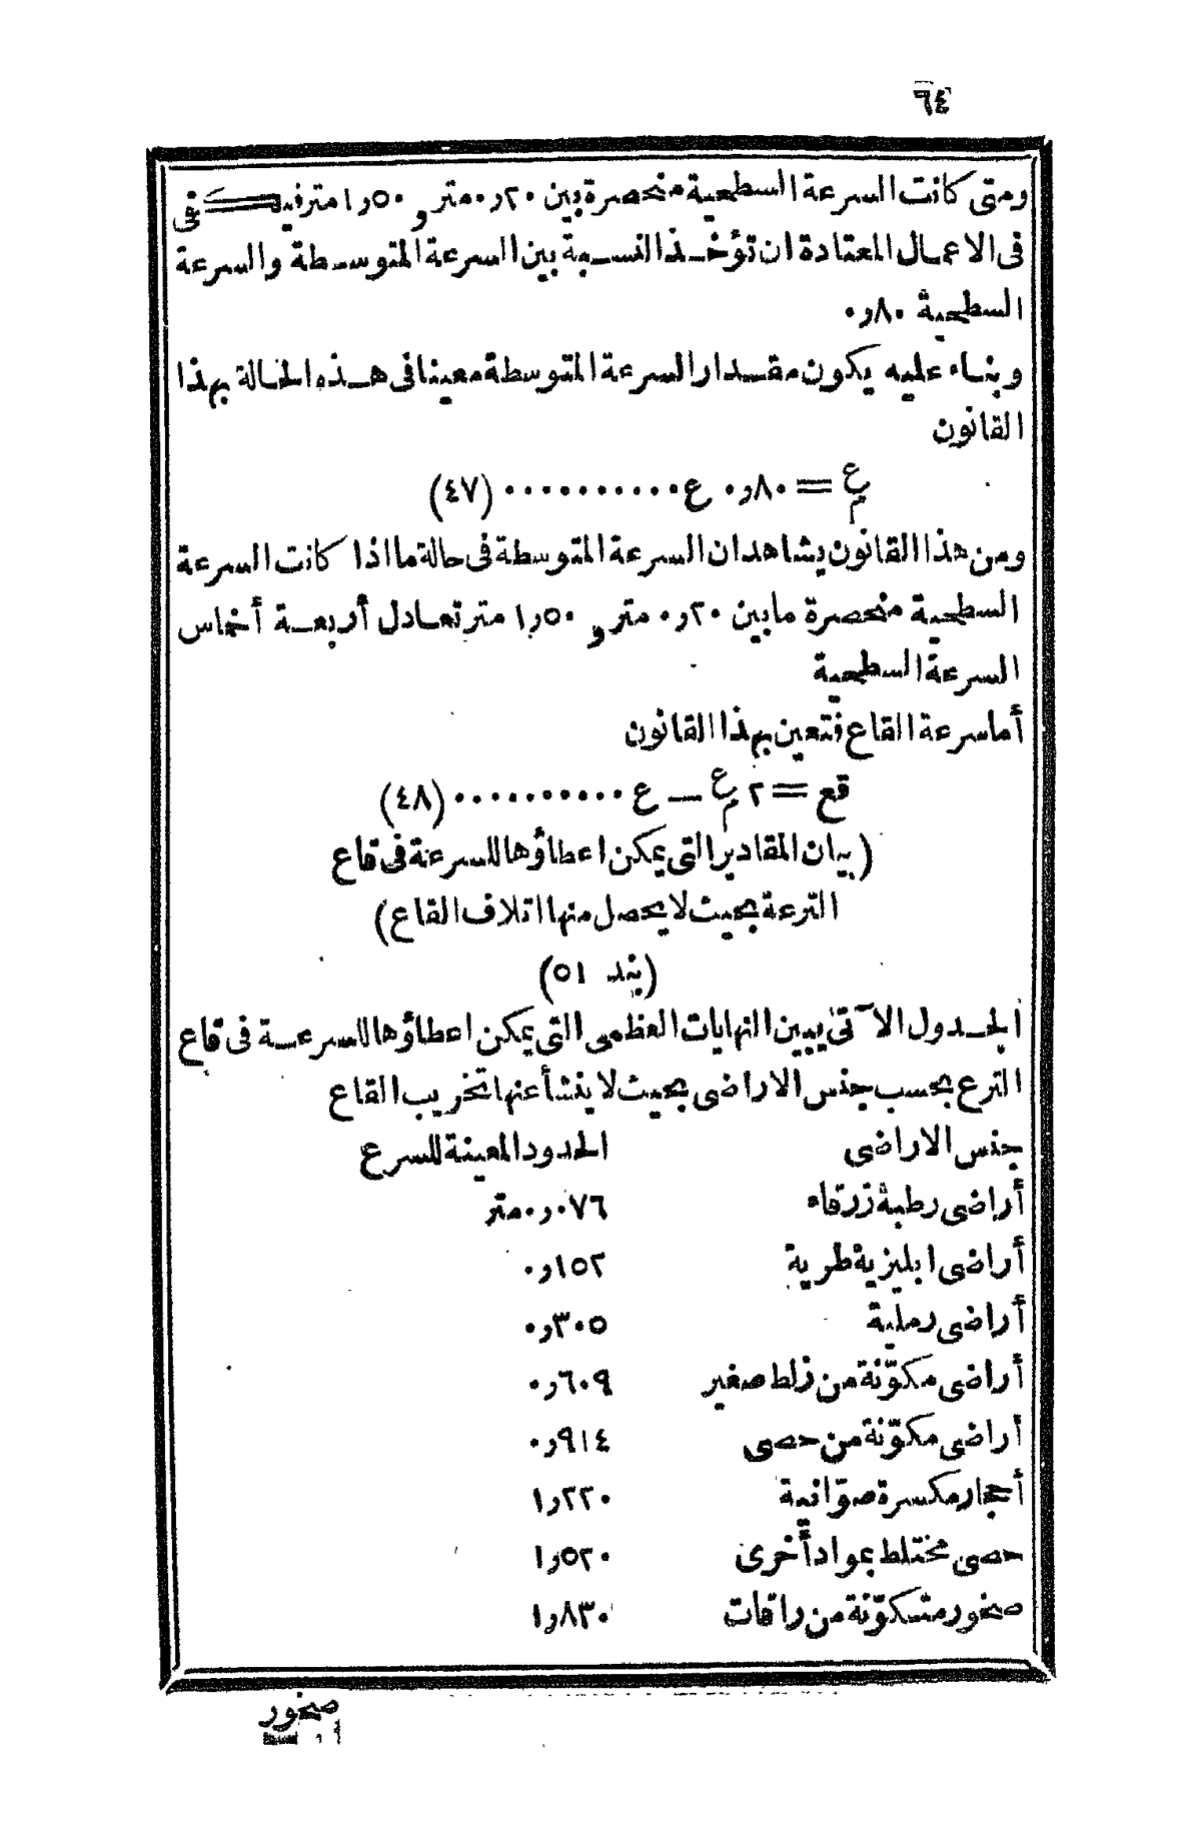 ٦٤
ومتى كانت السرعة السطحية منحصرة بين ٢٠ر٠ متر و ٥٠ر١ متر فيكفى
فى الاعمال المعتادة ان تؤخذ النسبة بين السرعة المتوسطة والسرعة
السطحية ٨٠ر٠
وبناء عليه يكون مقدار السرعة المتوسطة معينا فى هذه الحالة بهذا
القانون
عم = ٨٠ر٠ ع .......... (٤٧)
ومن هذا القانون يشاهد ان السرعة المتوسطة فى حالة ما اذا كانت السرعة
السطحية منحصرة ما بين ٢٠ر٠ متر و ٥٠ر١ متر تعادل أربعة أخماس
السرعة السطحية
أما سرعة القاع فتتعين بهذا القانون
قع = ٢ عم — ع .......... (٤٨)
(بيان المقادير التى يمكن اعطاؤها للسرعة فى قاع
الترعة بحيث لا يحصل منها اتلاف القاع)
(بند ٥١)
الجدول الآتى يبين النهايات العظمى التى يمكن اعطاؤها للسرعة فى قاع
الترع بحسب جنس الاراضى بحيث لا ينشأ عنها تخريب القاع
جنس الاراضى الحدود المعينة للسرع
أراضى رطبة زرقاء ٠٧٦ر٠ متر
أراضى ابليزية طرية ١٥٢ر٠
أراضى رملية ٣٠٥ر٠
أراضى مكوّنة من زلط صغير ٦٠٩ر٠
أراضى مكوّنة من حصى ٩١٤ر٠
أحجار مكسرة صوّانية ٢٢٠ر١
حصى مختلط بمواد أخرى ٥٢٠ر١
صخور متكوّنة من راقات ٨٣٠ر١
صخور